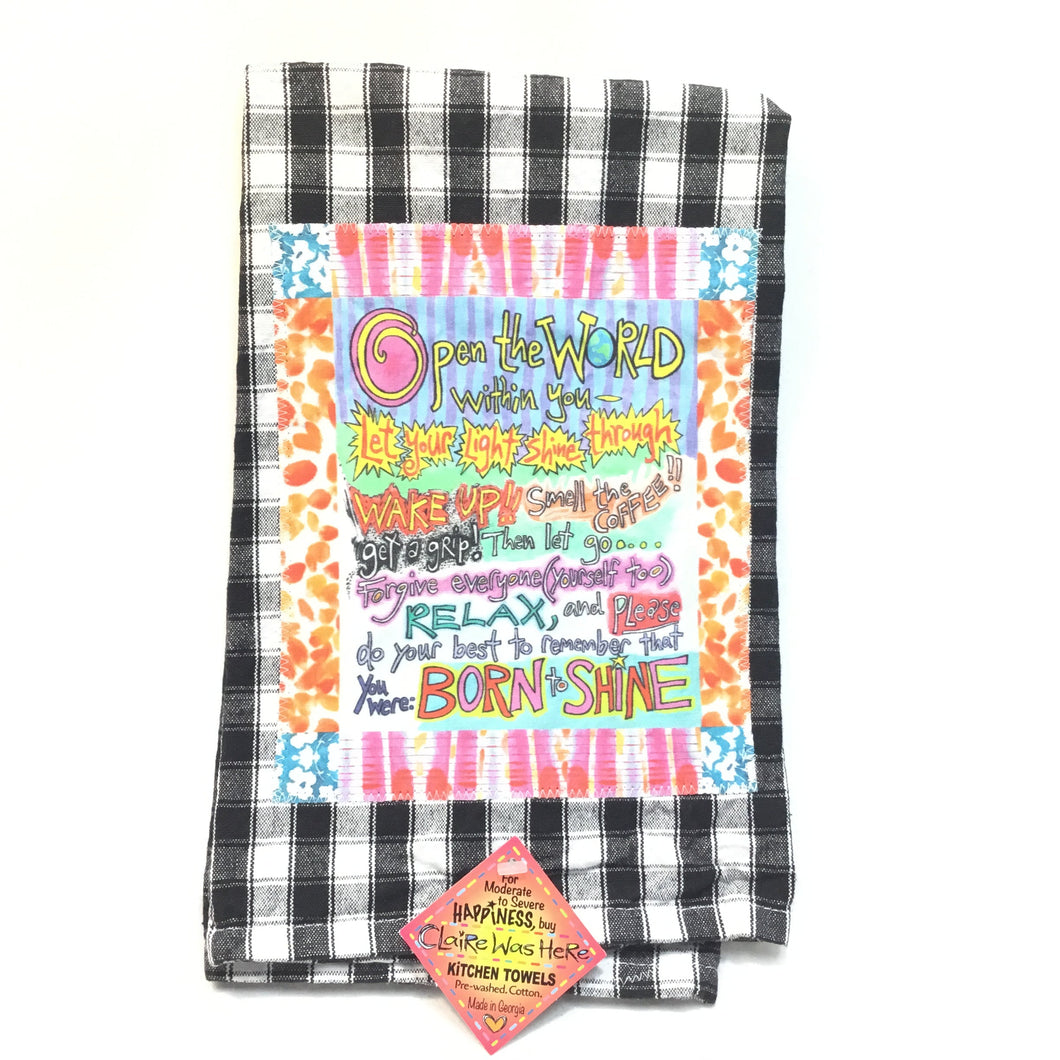 Open the WORLD
within you –
Let your Light shine through
WAKE UP!! Smell the
COFFEE!!
get a grip! Then let go....
Forgive everyone (yourself too)
RELAX, and PLease
do your best to remember that
You
were: BORN to SHiNE
For
Moderate
to Severe
HAPPiNESS, buy
CLaiRe Was HeRe
KiTCHEN TOWELS
Pre-washed. Cotton.
Made in Georgia